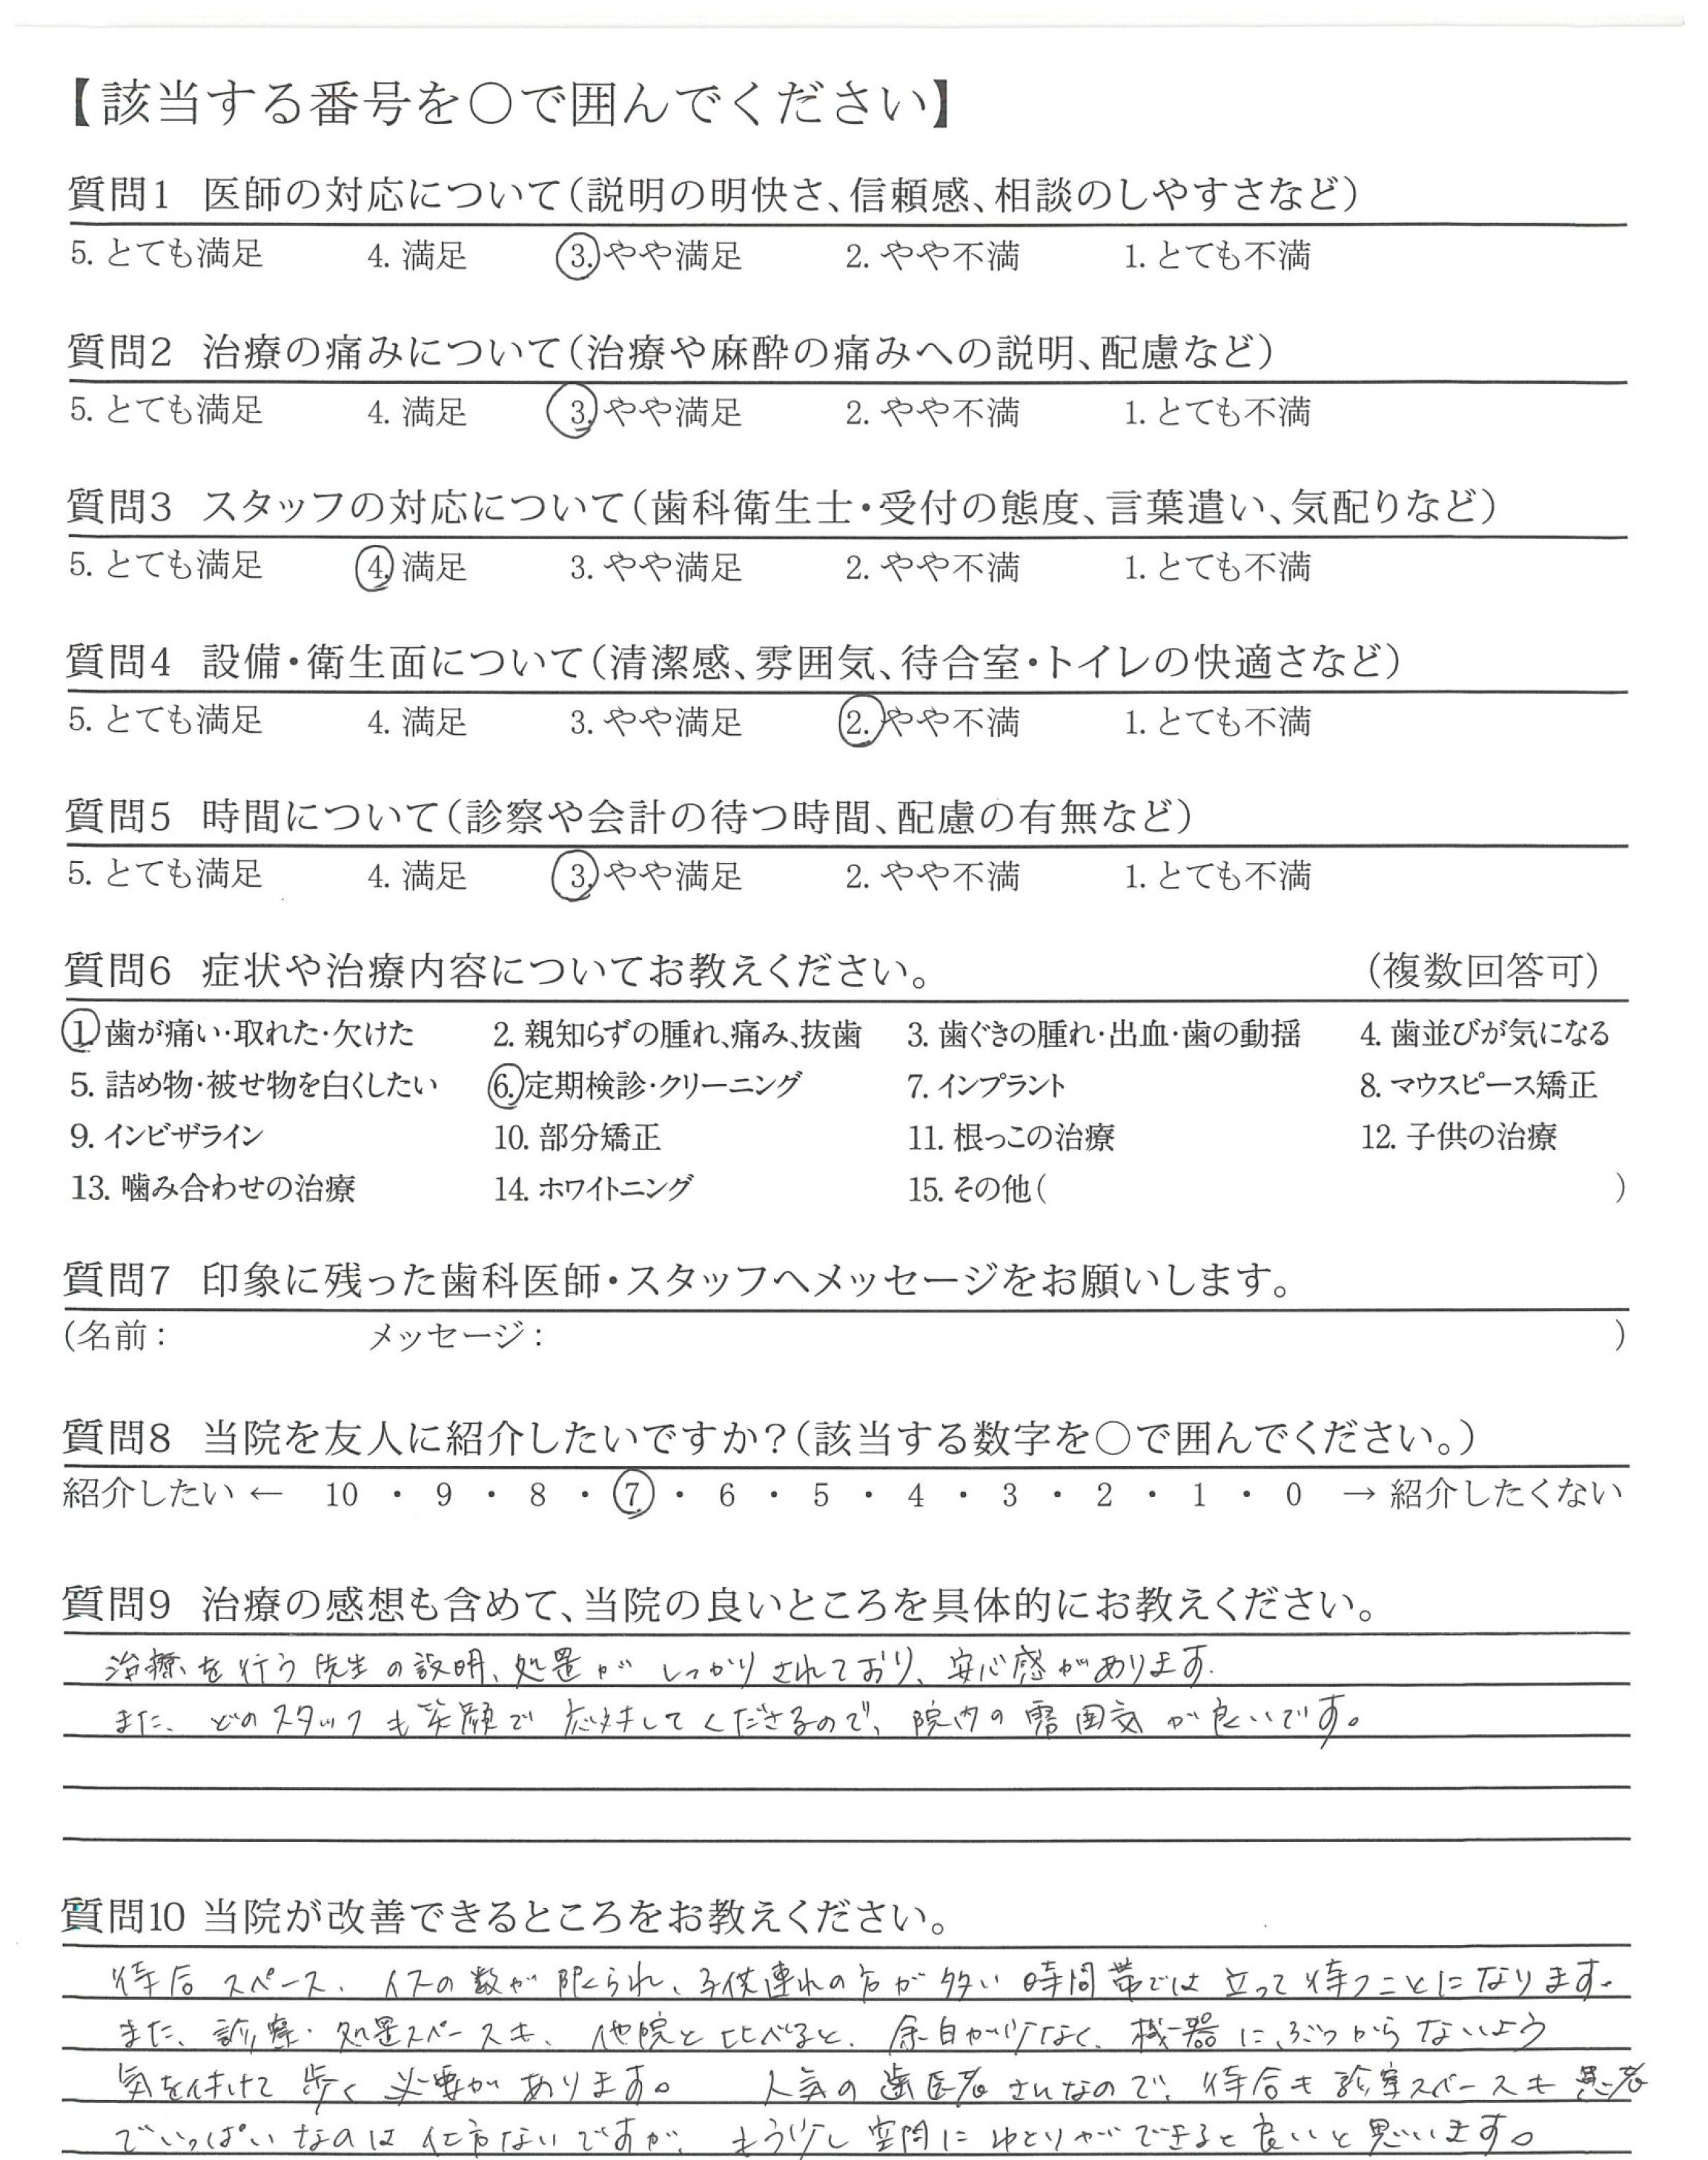 【該当する番号を○で囲んでください】
質問1 医師の対応について(説明の明快さ、信頼感、相談のしやすさなど)
5. とても満足 4. 満足 3. やや満足 2. やや不満 1. とても不満
質問2 治療の痛みについて(治療や麻酔の痛みへの説明、配慮など)
5. とても満足 4. 満足 3. やや満足 2. やや不満 1. とても不満
質問3 スタッフの対応について(歯科衛生士・受付の態度、言葉遣い、気配りなど)
5. とても満足 4. 満足 3. やや満足 2. やや不満 1. とても不満
質問4 設備・衛生面について(清潔感、雰囲気、待合室・トイレの快適さなど)
5. とても満足 4. 満足 3. やや満足 2. やや不満 1. とても不満
質問5 時間について(診察や会計の待つ時間、配慮の有無など)
5. とても満足 4. 満足 3. やや満足 2. やや不満 1. とても不満
質問6 症状や治療内容についてお教えください。 (複数回答可)
1. 歯が痛い・取れた・欠けた 2. 親知らずの腫れ、痛み、抜歯 3. 歯ぐきの腫れ・出血・歯の動揺 4. 歯並びが気になる
5. 詰め物・被せ物を白くしたい 6. 定期検診・クリーニング 7. インプラント 8. マウスピース矯正
9. インビザライン 10. 部分矯正 11. 根っこの治療 12. 子供の治療
13. 噛み合わせの治療 14. ホワイトニング 15. その他( )
質問7 印象に残った歯科医師・スタッフへメッセージをお願いします。
(名前: メッセージ: )
質問8 当院を友人に紹介したいですか?(該当する数字を○で囲んでください。)
紹介したい ← 10 ・ 9 ・ 8 ・ 7 ・ 6 ・ 5 ・ 4 ・ 3 ・ 2 ・ 1 ・ 0 → 紹介したくない
質問9 治療の感想も含めて、当院の良いところを具体的にお教えください。
治療を行う先生の説明、処置がしっかりされており、安心感があります。
また、どのスタッフも笑顔で応対してくださるので、院内の雰囲気が良いです。
質問10 当院が改善できるところをお教えください。
待合スペース、イスの数が限られ、子供連れの方が多い時間帯では立って待つことになります。
また、診察・処置スペースも、他院と比べると、余白が少なく、機器にぶつからないよう
気を付けて歩く必要があります。 人気の歯医者さんなので、待合も診室スペースも患者
でいっぱいなのは仕方ないですが、もう少し空間にゆとりができると良いと思います。